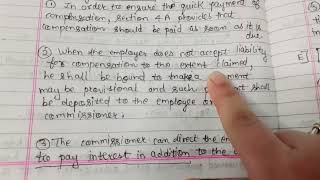 ① In order to ensure the quick payment of
compensation, section 4A provides that
compensation should be paid as soon as it is
due.
② When the employer does not accept liability
for compensation to the extent claimed,
he shall be bound to make a
may be provisional and such shall
be deposited to the employee or
commissioner.
③ The commissioner can direct the
to pay interest in addition to the
E]